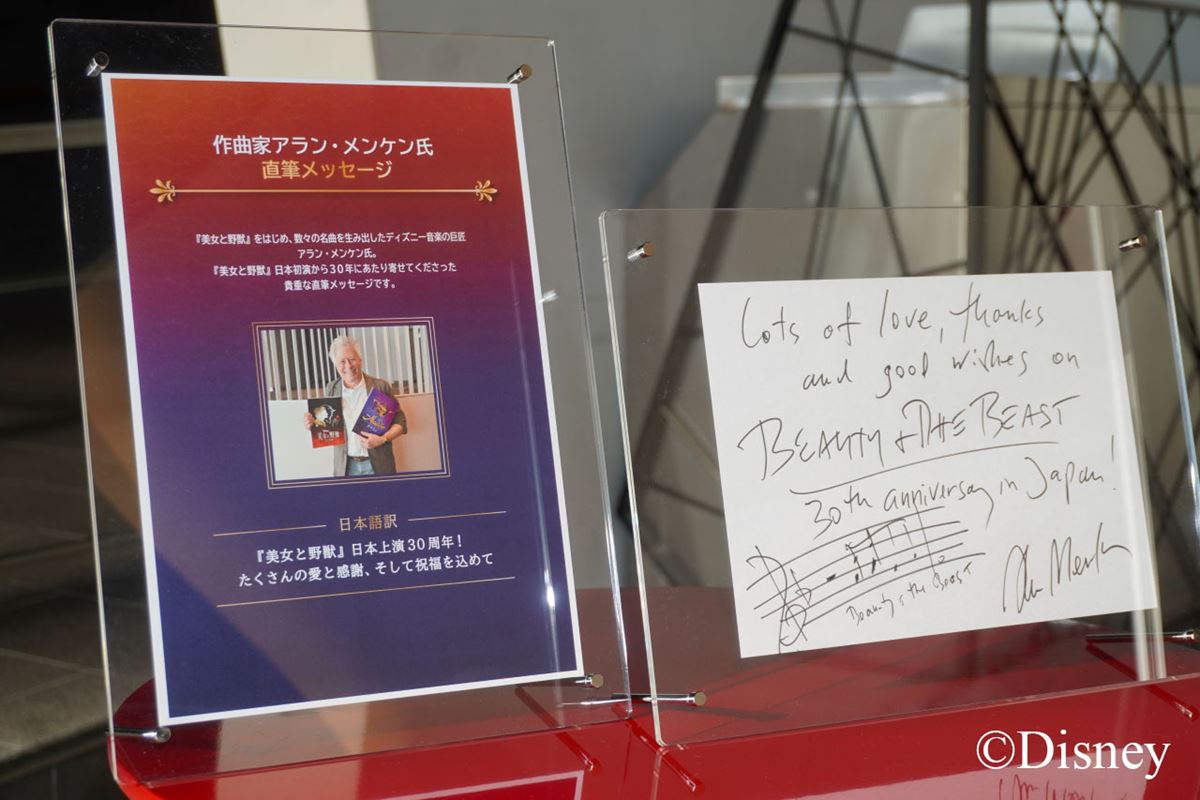 作曲家アラン・メンケン氏
直筆メッセージ
『美女と野獣』をはじめ、数々の名曲を生み出したディズニー音楽の巨匠
アラン・メンケン氏。
『美女と野獣』日本初演から30年にあたり寄せてくださった
貴重な直筆メッセージです。
美女と野獣
日本語訳
『美女と野獣』日本上演30周年!
たくさんの愛と感謝、そして祝福を込めて
Lots of love, thanks
and good wishes on
BEAUTY & THE BEAST
30th anniversary in Japan!
Beauty & the Beast
©Disney